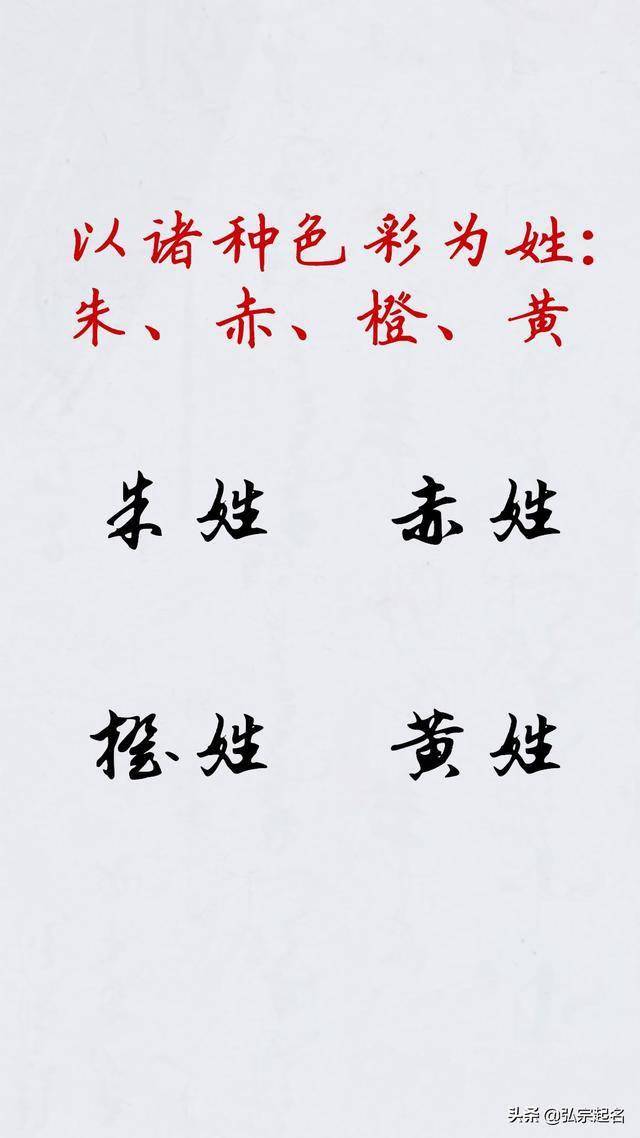 以诸种色彩为姓：
朱、赤、橙、黄
朱姓 赤姓
橙姓 黄姓
头条 @弘宗起名